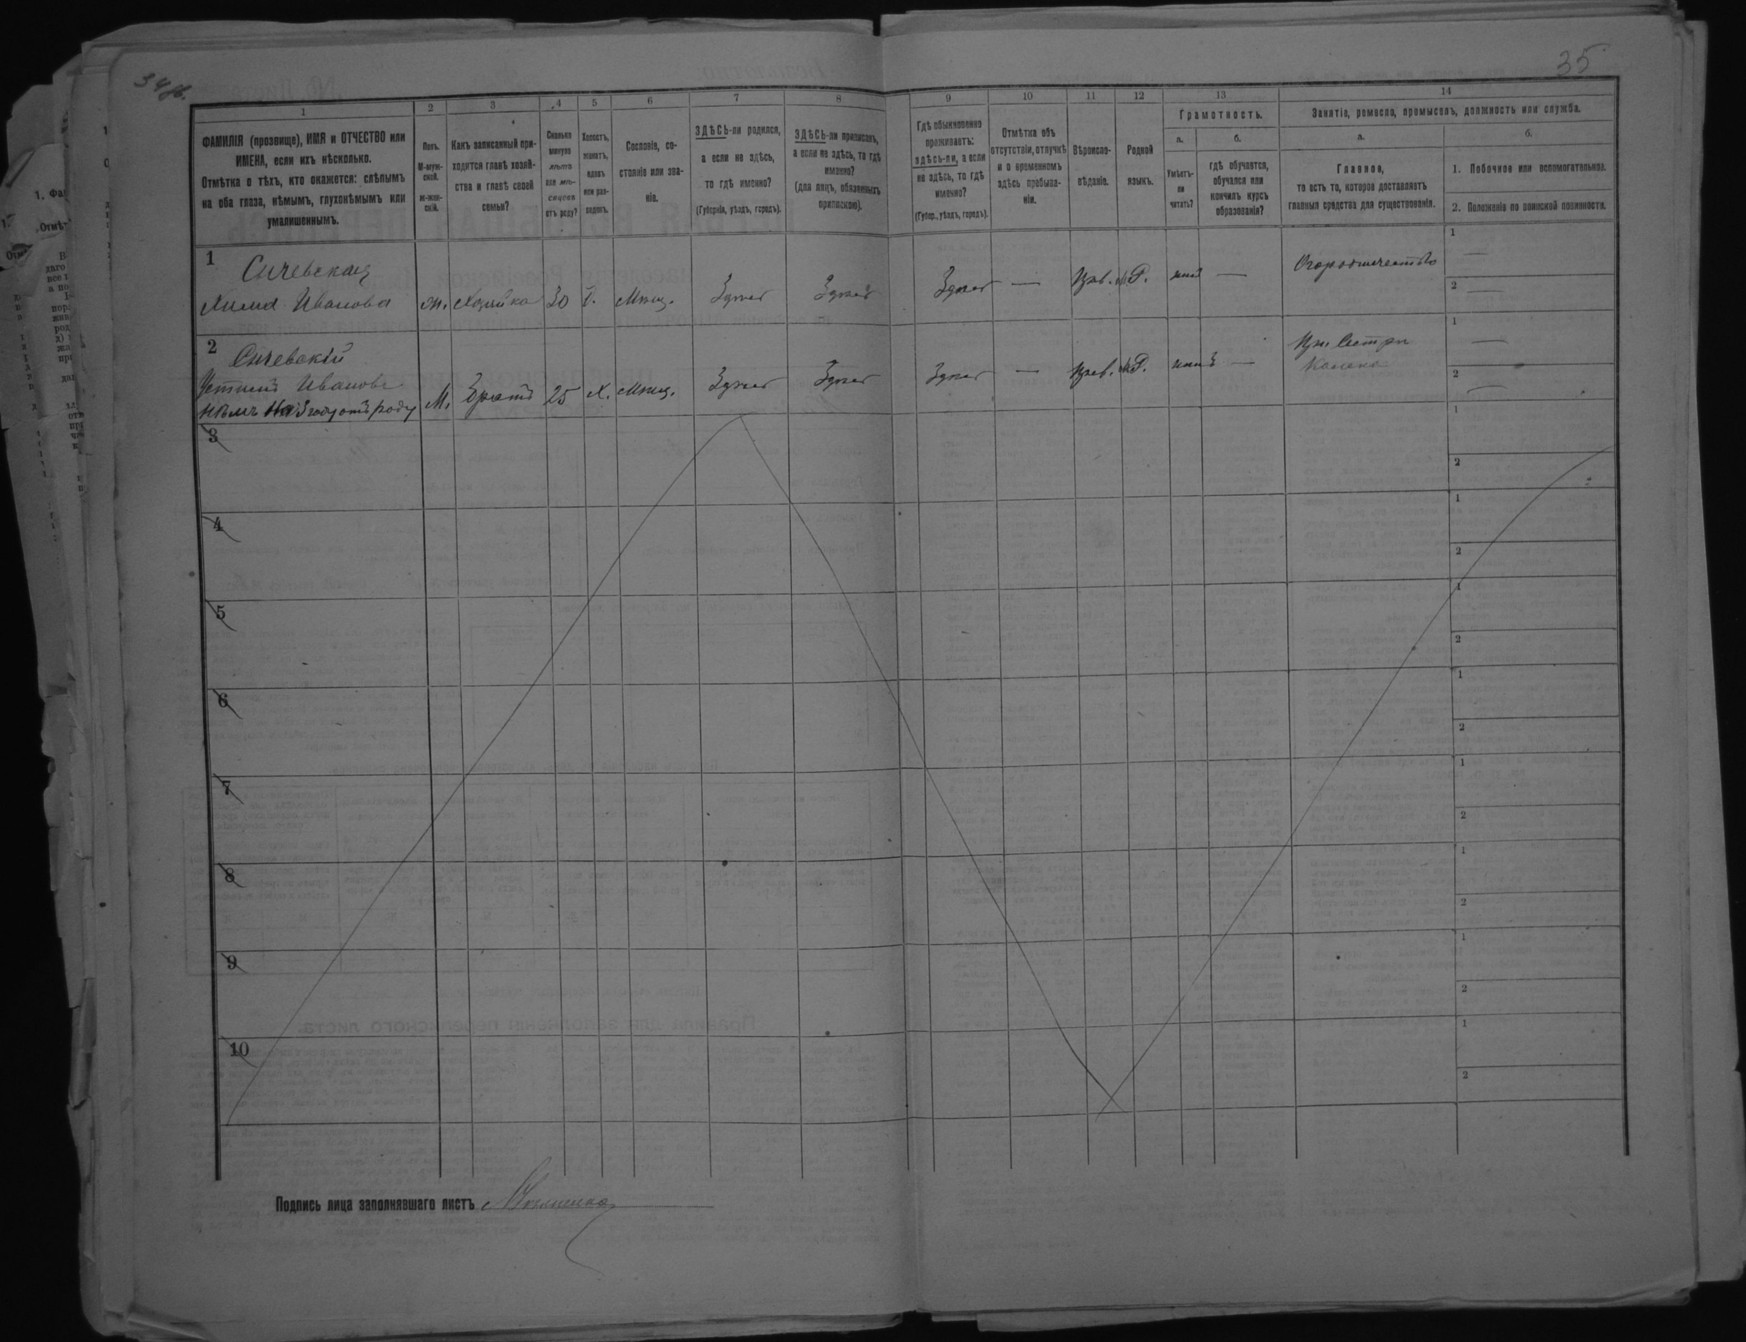 34 об.
35
1 2 3 4 5 6 7 8 9 10 11 12 13 14
ФАМИЛІЯ (прозвище), ИМЯ и ОТЧЕСТВО или
ИМЕНА, если ихъ нѣсколько.
Отмѣтка о тѣхъ, кто окажется: слѣпымъ
на оба глаза, нѣмымъ, глухонѣмымъ или
умалишеннымъ.
Полъ.
М-муж-
ской.
ж-жен-
скій.
Какъ записанный при-
ходится главѣ хозяй-
ства и главѣ своей
семьи?
Сколько
минуло
лѣтъ
или мѣ-
сяцевъ
отъ роду?
Холостъ,
женатъ,
вдовъ
или раз-
веденъ.
Сословіе, со-
стояніе или зва-
ніе.
ЗДѢСЬ-ли родился,
а если не здѣсь,
то гдѣ именно?
(Губернія, уѣздъ, городъ).
ЗДѢСЬ-ли приписанъ,
а если не здѣсь, то гдѣ
именно?
(для лицъ, обязанныхъ
припискою).
Гдѣ обыкновенно
проживаетъ:
здѣсь-ли, а если
не здѣсь, то гдѣ
именно?
(Губер., уѣздъ, городъ).
Отмѣтка объ
отсутствіи, отлучкѣ
и о временномъ
здѣсь пребыва-
ніи.
Вѣроиспо-
вѣданіе.
Родной
языкъ.
Грамотность.
а.
Умѣетъ-
ли
читать?
б.
гдѣ обучается,
обучался или
кончилъ курсъ
образованія?
Занятіе, ремесло, промыселъ, должность или служба.
а.
Главное,
то есть то, которое доставляетъ
главныя средства для существованія.
б.
1. Побочное или вспомогательное.
2. Положеніе по воинской повинности.
1
Сичевская
Ивановна ж. Хозяйка 30 Мѣщ. Здѣсь Здѣсь Здѣсь — Прав. М.Р. —
1 —
2 —
2
Сичевскій
Устинъ Ивановъ
нѣмъ на 3 году отъ роду М. Братъ 25 Х. Мѣщ. Здѣсь Здѣсь Здѣсь — Прав. М.Р. — При Сестрѣ
1 —
2 —
3
1
2
4
1
2
5
1
2
6
1
2
7
1
2
8
1
2
9
1
2
10
1
2
Подпись лица заполнявшаго листъ